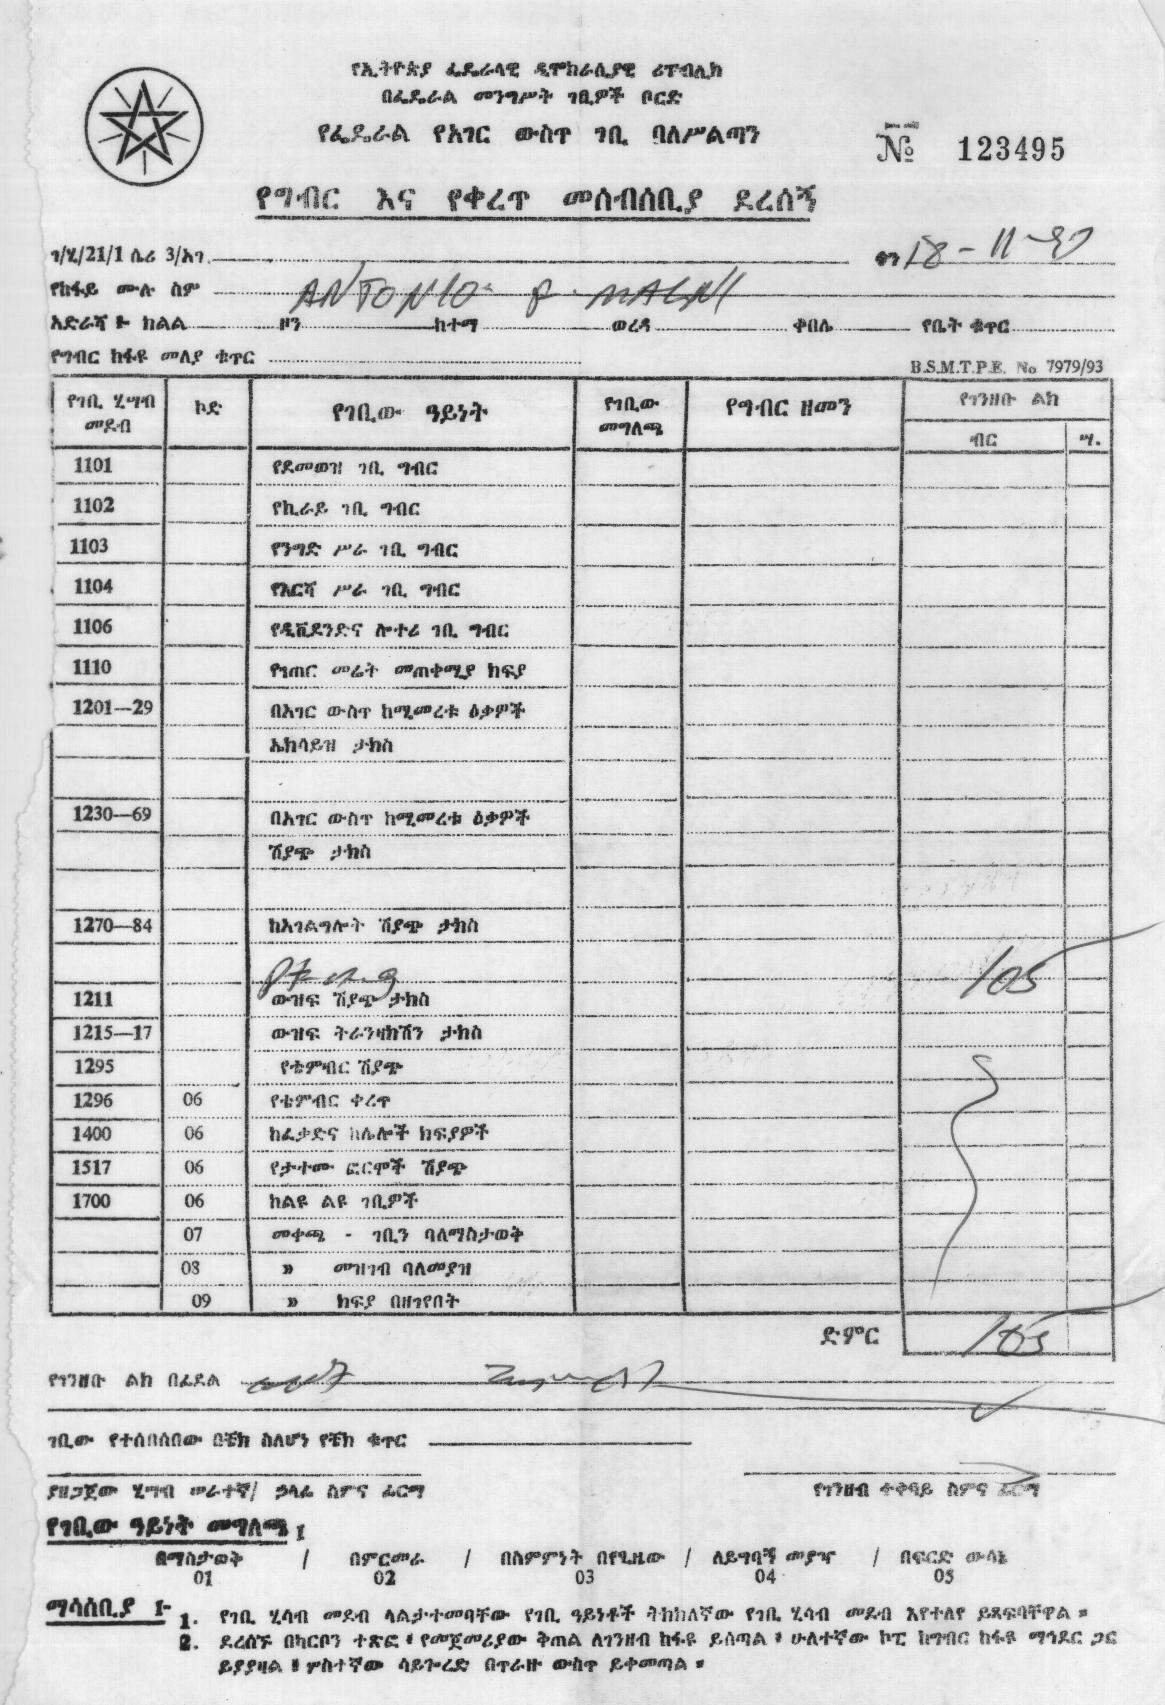 የኢትዮጵያ ፌዴራላዊ ዲሞክራሲያዊ ሪፐብሊክ
በፌዴራል መንግሥት ገቢዎች ቦርድ
የፌዴራል የአገር ውስጥ ገቢ ባለሥልጣን
№ 123495
የግብር እና የቀረጥ መሰብሰቢያ ደረሰኝ
ገ/ሂ/21/1 ሴሪ 3/አገ
ቀን 18-11-
የከፋይ ሙሉ ስም ANTONIO
አድራሻ ፦ ክልል ዞን ከተማ ወረዳ ቀበሌ የቤት ቁጥር
የግብር ከፋዩ መለያ ቁጥር
B.S.M.T.P.E. No 7979/93
የገቢ ሂሣብ መደብ ኮድ የገቢው ዓይነት የገቢው መግለጫ የግብር ዘመን የገንዘቡ ልክ
ብር ሣ.
1101 የደመወዝ ገቢ ግብር
1102 የኪራይ ገቢ ግብር
1103 የንግድ ሥራ ገቢ ግብር
1104 የእርሻ ሥራ ገቢ ግብር
1106 የዲቪደንድና ሎተሪ ገቢ ግብር
1110 የገጠር መሬት መጠቀሚያ ክፍያ
1201—29 በአገር ውስጥ ከሚመረቱ ዕቃዎች
ኤክሳይዝ ታክስ
1230—69 በአገር ውስጥ ከሚመረቱ ዕቃዎች
ሽያጭ ታክስ
1270—84 ከአገልግሎት ሽያጭ ታክስ
105
1211 ውዝፍ ሽያጭ ታክስ
1215—17 ውዝፍ ትራንዛክሽን ታክስ
1295 የቴምብር ሽያጭ
1296 06 የቴምብር ቀረጥ
1400 06 ከፈቃድና ከሌሎች ክፍያዎች
1517 06 የታተሙ ፎርሞች ሽያጭ
1700 06 ከልዩ ልዩ ገቢዎች
07 መቀጫ - ገቢን ባለማስታወቅ
08 » መዝገብ ባለመያዝ
09 » ክፍያ በዘገየበት
ድምር 105
የገንዘቡ ልክ በፊደል
ገቢው የተሰበሰበው በቼክ ስለሆነ የቼክ ቁጥር
ያዘጋጀው ሂሣብ ሠራተኛ/ ኃላፊ ስምና ፊርማ
የገንዘብ ተቀባይ ስምና ፊርማ
የገቢው ዓይነት መግለጫ ፤
በማስታወቅ / በምርመራ / በስምምነት በየጊዜው / ለይግባኝ መያዣ / በፍርድ ውሳኔ
01 02 03 04 05
ማሳሰቢያ ፤- 1. የገቢ ሂሳብ መደብ ላልታተመባቸው የገቢ ዓይነቶች ትክክለኛው የገቢ ሂሳብ መደብ እየተለየ ይጻፍባቸዋል ።
2. ደረሰኙ በካርቦን ተጽፎ ፣ የመጀመሪያው ቅጠል ለገንዘብ ከፋዩ ይሰጣል ፣ ሁለተኛው ኮፒ ከግብር ከፋዩ ማኅደር ጋር
ይያያዛል ፣ ሦስተኛው ሳይጐረድ በጥራዙ ውስጥ ይቀመጣል ።